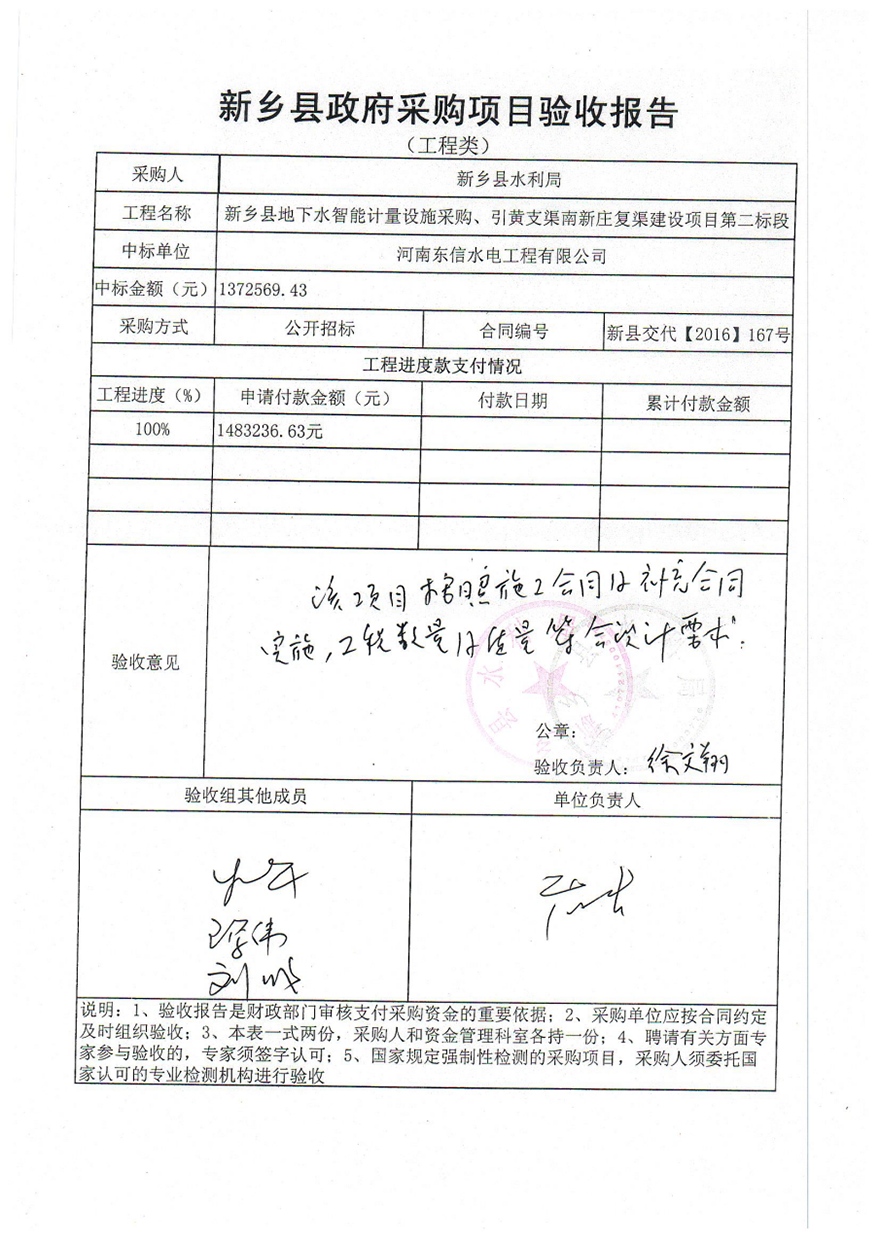 新乡县政府采购项目验收报告
（工程类）
采购人 新乡县水利局
工程名称 新乡县地下水智能计量设施采购、引黄支渠南新庄复渠建设项目第二标段
中标单位 河南东信水电工程有限公司
中标金额（元） 1372569.43
采购方式 公开招标 合同编号 新县交代【2016】167号
工程进度款支付情况
工程进度（%） 申请付款金额（元） 付款日期 累计付款金额
100% 1483236.63元
该项目按照施工合同及补充合同
实施，工程数量及质量符合设计要求.
验收意见
公章：
验收负责人： 徐文翔
验收组其他成员 单位负责人
说明：1、验收报告是财政部门审核支付采购资金的重要依据；2、采购单位应按合同约定
及时组织验收；3、本表一式两份，采购人和资金管理科室各持一份；4、聘请有关方面专
家参与验收的，专家须签字认可；5、国家规定强制性检测的采购项目，采购人须委托国
家认可的专业检测机构进行验收